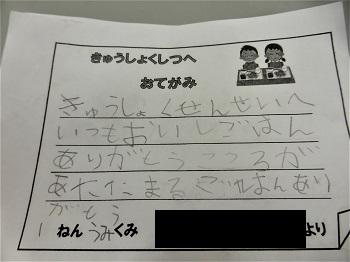 きゅうしょくしつへ
おてがみ
きゅうしょくせんせいへ
いつもおいしごはん
ありがとうこころが
あたたまるごはんあり
がとう
1 ねん うみ くみ より